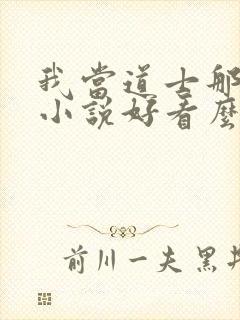 我當道士那
小說好看麼
前川一夫 黑